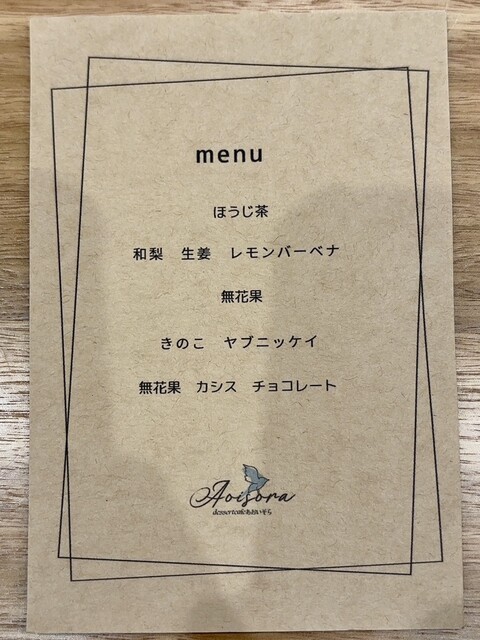 menu
ほうじ茶
和梨　生姜　レモンバーベナ
無花果
きのこ　ヤブニッケイ
無花果　カシス　チョコレート
Aoisora
dessertcafeあおいそら